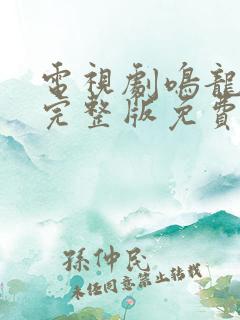 電視劇鳴龍
完整版免費
孫仲民
未經同意禁止轉載